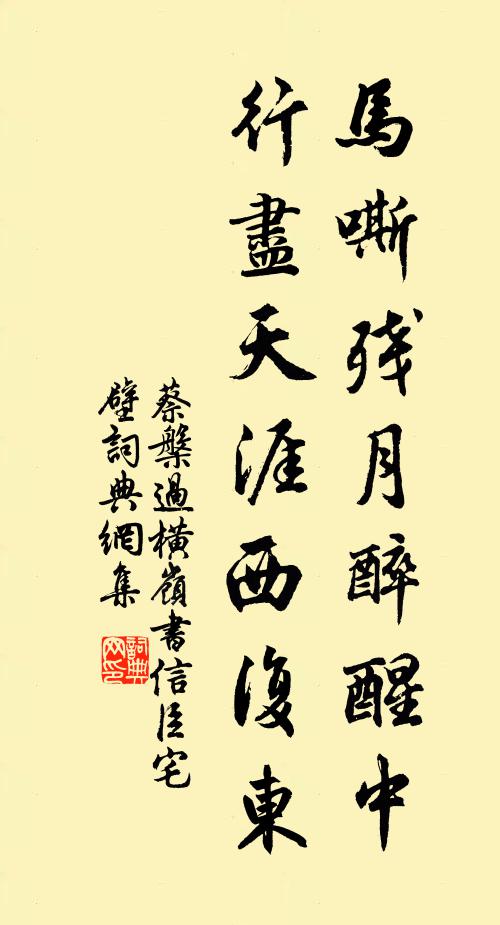 馬嘶残月醉醒中
行盡天涯西復東
蔡槃過橫嶺書信臣宅
壁詞典網集
詞典
网印